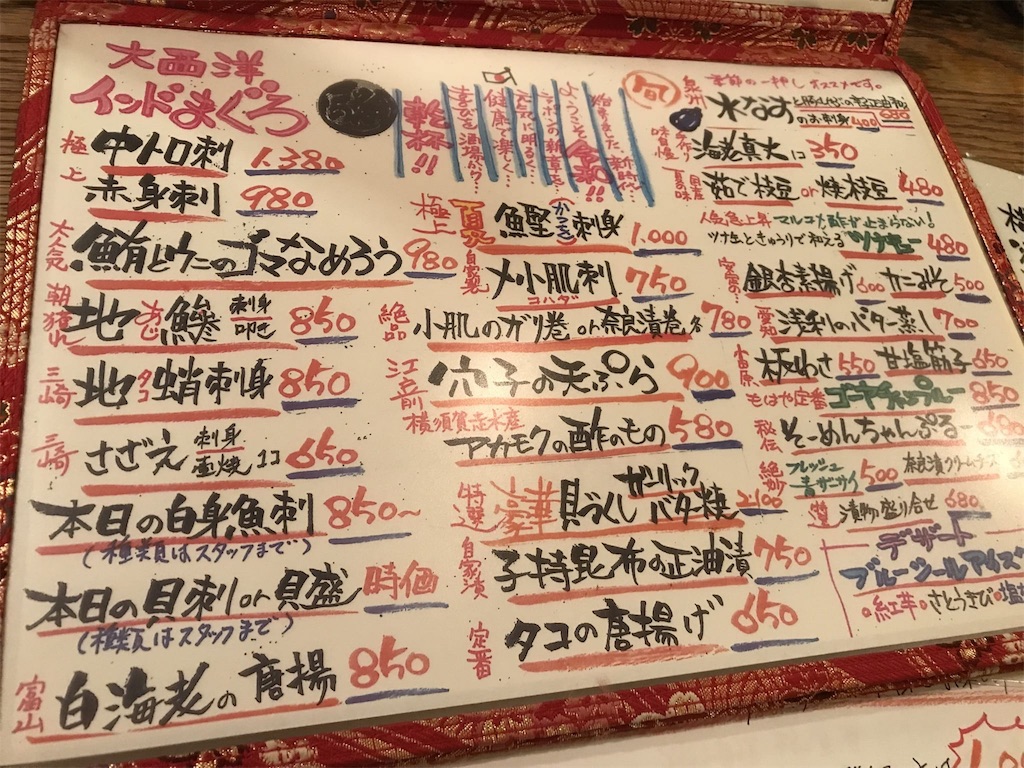 大西洋
インドまぐろ
極上
中トロ刺 1.380
赤身刺 980
大人気
鮪とウニのゴマなめろう 980
朝獲れ
地あじ鯵 刺身 叩き 850
三崎
地タコ蛸刺身 850
三崎
さざえ 刺身 壺焼 1コ 650
本日の白身魚刺 850~
(種類はスタッフまで)
本日の貝刺or貝盛 時価
(種類はスタッフまで)
富山
白海老の唐揚 850
乾杯!!
ようこそ令和!!
極上
夏 鰹(かつお)刺身 1.000
自家製
〆小肌刺 750
コハダ
絶品
小肌のガリ巻 or 奈良漬巻 各780
江戸前
穴子の天ぷら 900
横須賀走水産
アカモクの酢のもの 580
特選
豪華 貝づくし ガーリックバター焼 2100
自家漬
子持昆布の正油漬 750
定番
タコの唐揚げ 650
旬
季節の一押しオススメです。
泉州
水なす
のお刺身 400 680
海老真丈 1コ 350
国産
茹で枝豆 or 焼枝豆 480
人気急上昇 マルコメ 酢が止まらない!
ツナ生ときゅうりで和える ツナモー 480
銀杏素揚げ 600 カニみそ 500
愛知
浅利のバター蒸し 700
板わさ 550 甘塩筋子 650
もはや定番 ゴーヤチャンプルー 850
秘伝
そーめんちゃんぷるー 680
絶妙
フレッシュ青ザーサイ 500 奈良漬クリームチーズ
漬物盛り合せ 680
デザート
ブルーシールアイス
紅芋 さとうきび 塩